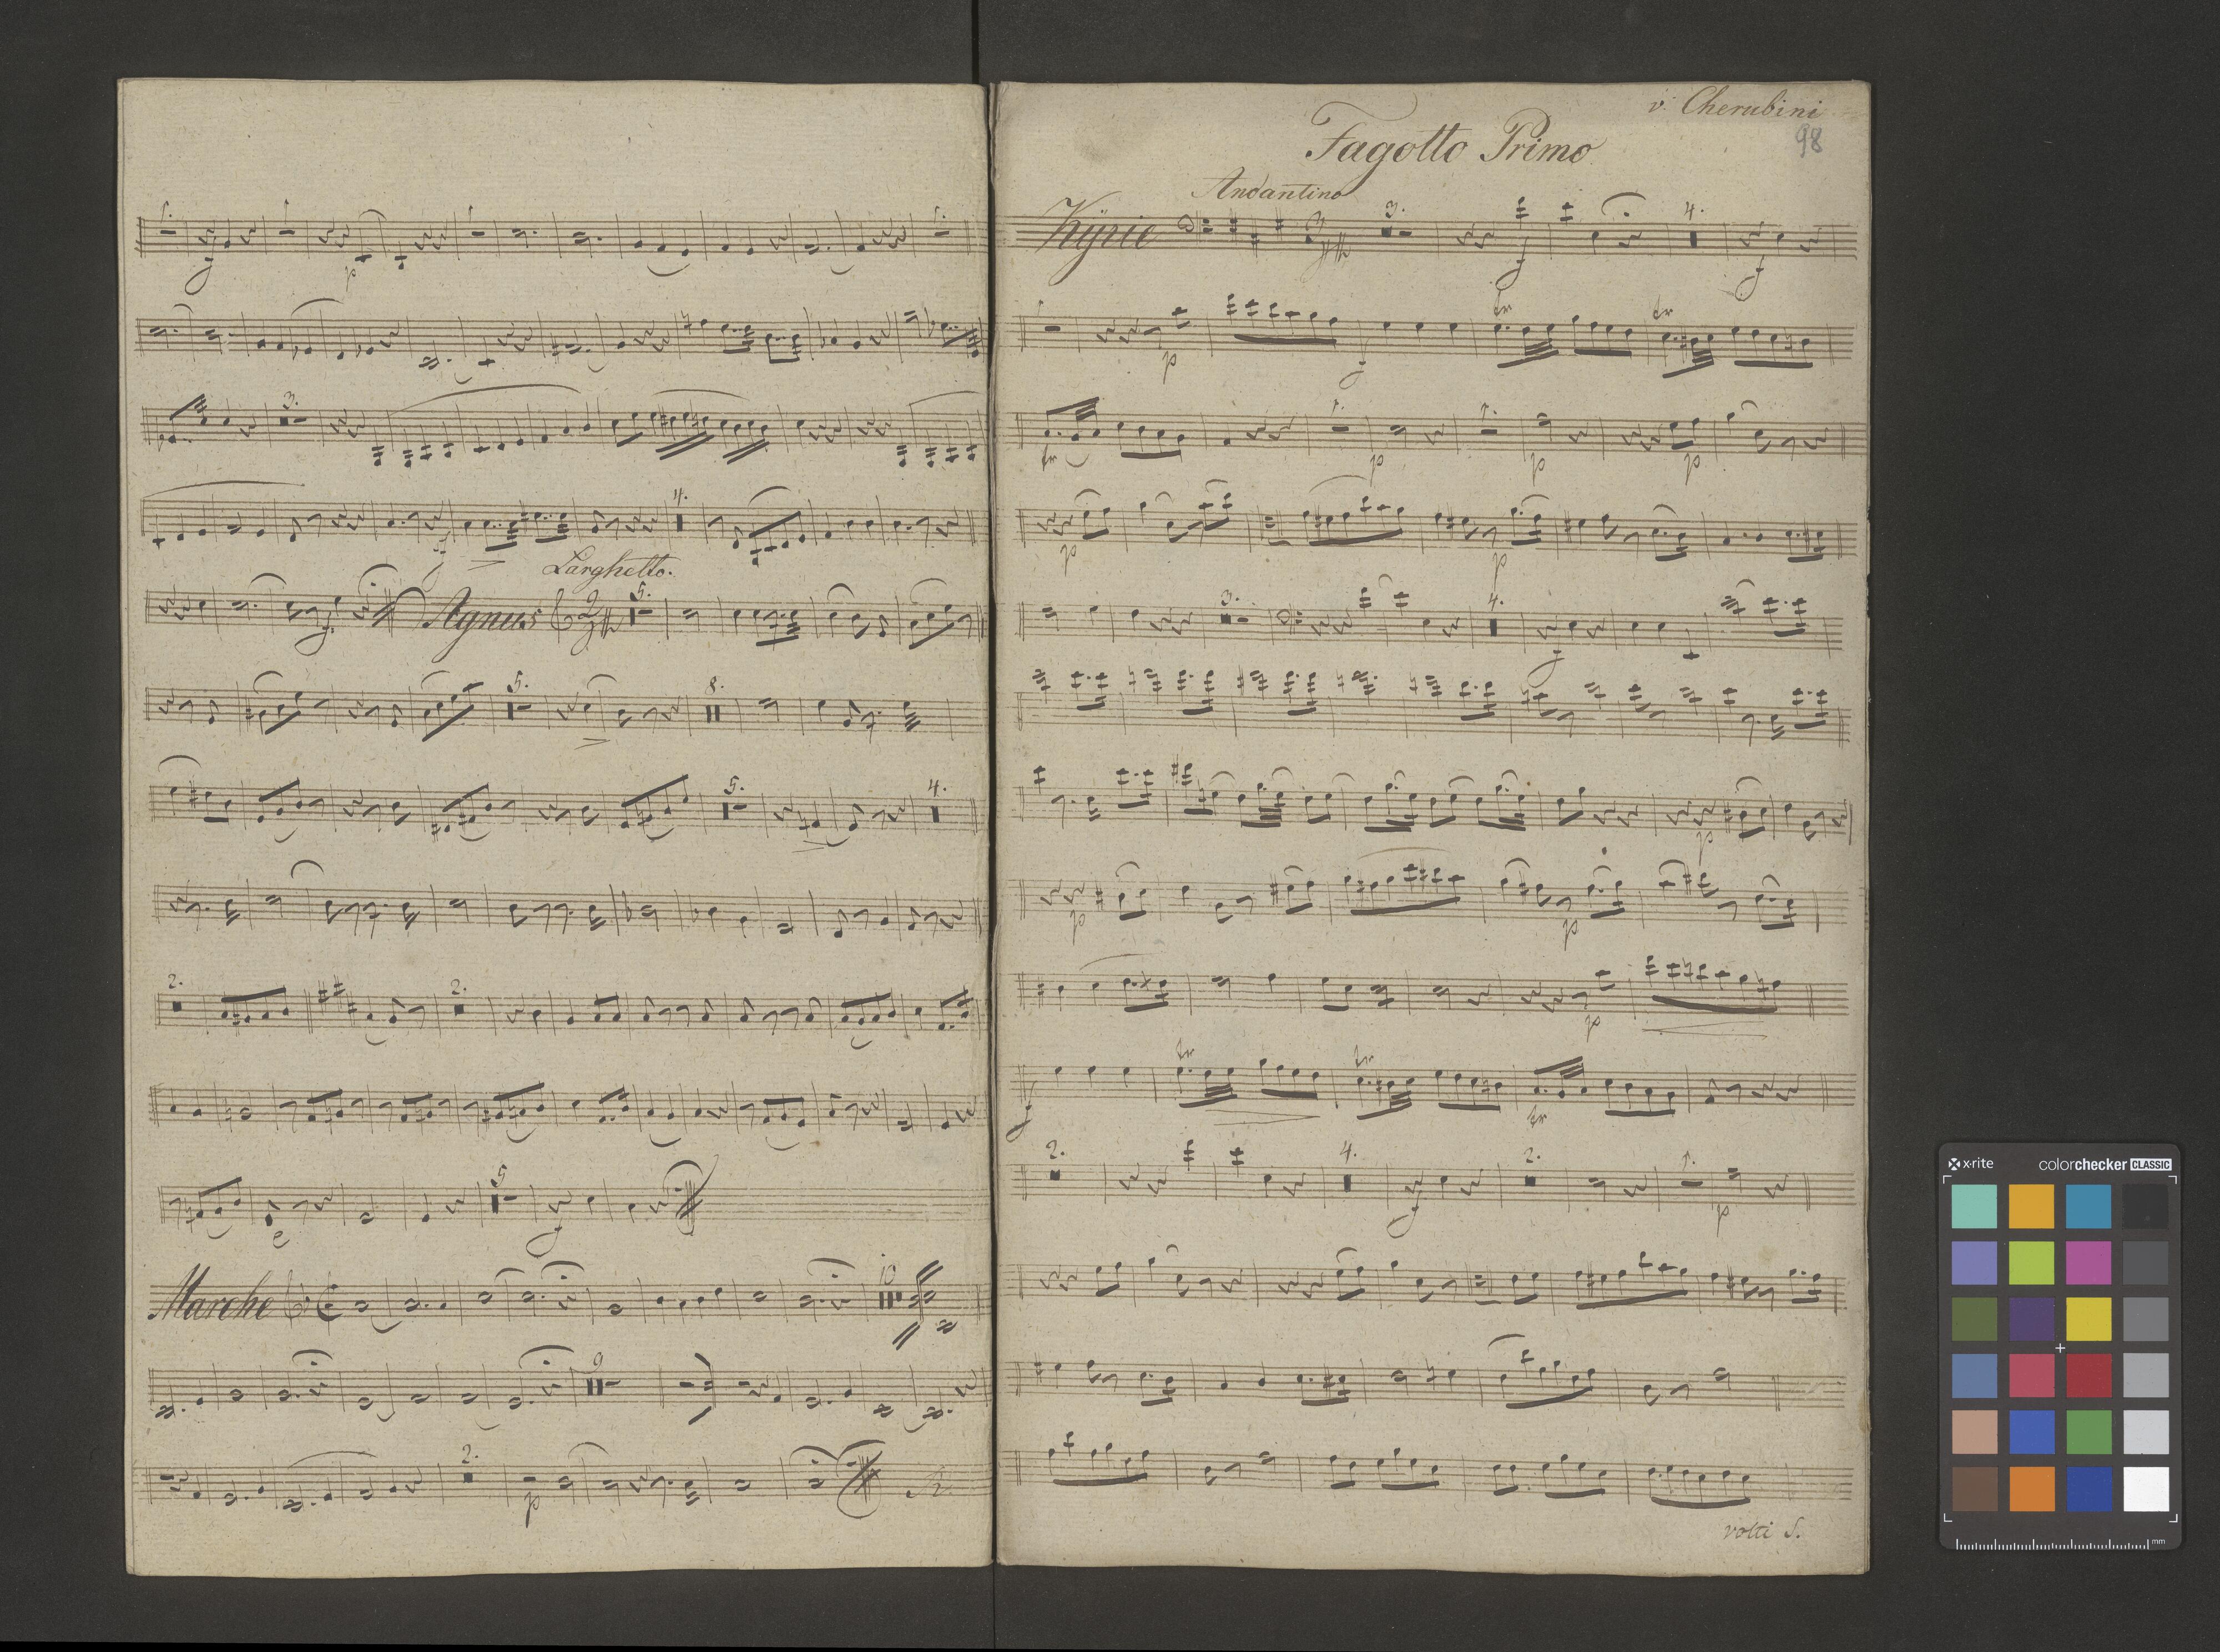 Larghetto.
Agnus
Marche
v. Cherubini
98
Fagotto Primo
Andantino
Kÿrie
volti S.
x-rite colorchecker CLASSIC
mm